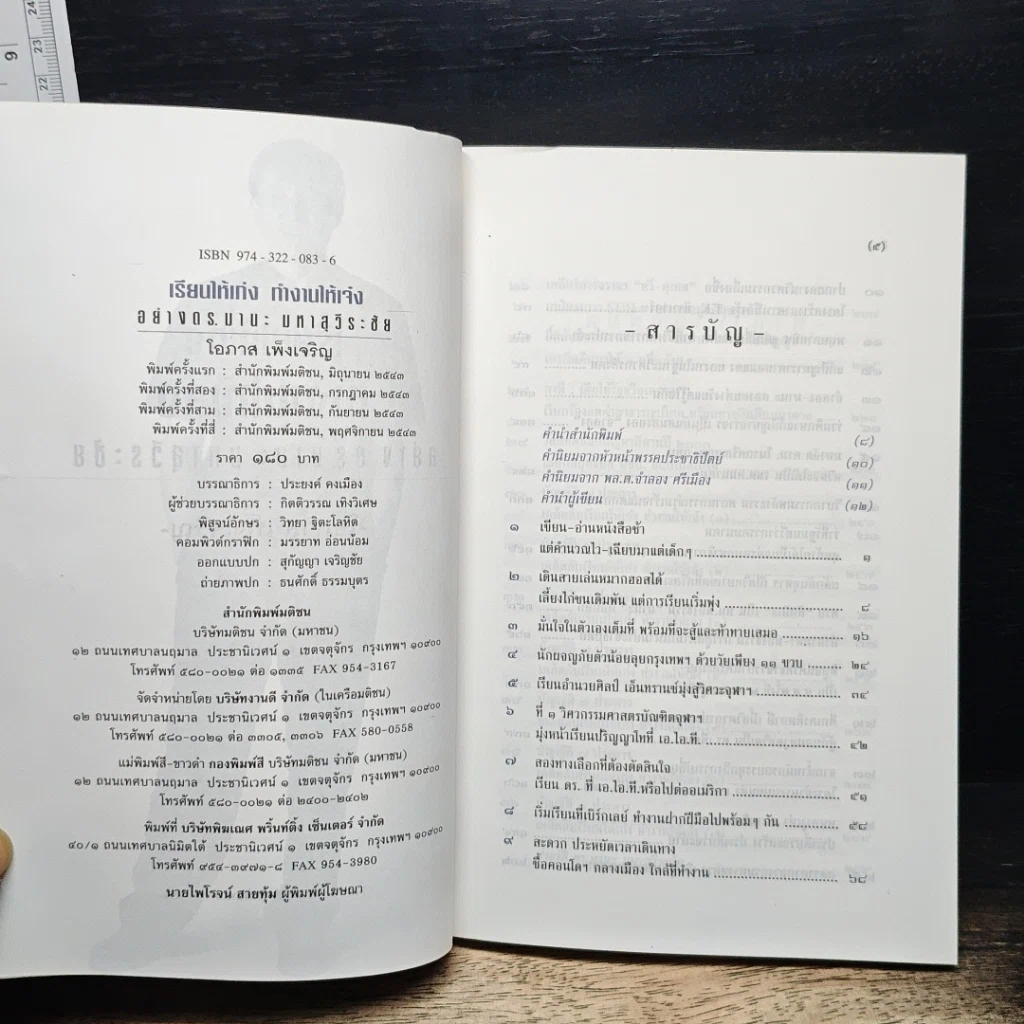 ISBN 974 - 322 - 083 - 6
เรียนให้เก่ง ทำงานให้เจ๋ง
อย่างดร.มานะ มหาสุวีระชัย
โอภาส เพ็งเจริญ
พิมพ์ครั้งแรก : สำนักพิมพ์มติชน, มิถุนายน ๒๕๔๓
พิมพ์ครั้งที่สอง : สำนักพิมพ์มติชน, กรกฎาคม ๒๕๔๓
พิมพ์ครั้งที่สาม : สำนักพิมพ์มติชน, กันยายน ๒๕๔๓
พิมพ์ครั้งที่สี่ : สำนักพิมพ์มติชน, พฤศจิกายน ๒๕๔๓
ราคา ๑๘๐ บาท
บรรณาธิการ : ประยงค์ คงเมือง
ผู้ช่วยบรรณาธิการ : กิตติวรรณ เทิงวิเศษ
พิสูจน์อักษร : วิทยา ฐิตะโลหิต
คอมพิวต์กราฟิก : มรรยาท อ่อนน้อม
ออกแบบปก : สุกัญญา เจริญชัย
ถ่ายภาพปก : ธนศักดิ์ ธรรมบุตร
สำนักพิมพ์มติชน
บริษัทมติชน จำกัด (มหาชน)
๑๒ ถนนเทศบาลนฤมาล ประชานิเวศน์ ๑ เขตจตุจักร กรุงเทพฯ ๑๐๙๐๐
โทรศัพท์ ๕๘๐-๐๐๒๑ ต่อ ๑๓๓๕ FAX 954-3167
จัดจำหน่ายโดย บริษัทงานดี จำกัด (ในเครือมติชน)
๑๒ ถนนเทศบาลนฤมาล ประชานิเวศน์ ๑ เขตจตุจักร กรุงเทพฯ ๑๐๙๐๐
โทรศัพท์ ๕๘๐-๐๐๒๑ ต่อ ๓๓๐๕, ๓๓๐๖ FAX 580-0558
แม่พิมพ์สี-ขาวดำ กองพิมพ์สี บริษัทมติชน จำกัด (มหาชน)
๑๒ ถนนเทศบาลนฤมาล ประชานิเวศน์ ๑ เขตจตุจักร กรุงเทพฯ ๑๐๙๐๐
โทรศัพท์ ๕๘๐-๐๐๒๑ ต่อ ๒๔๐๐-๒๔๐๒
พิมพ์ที่ บริษัทพิฆเณศ พริ้นท์ติ้ง เซ็นเตอร์ จำกัด
๔๐/๑ ถนนเทศบาลนิมิตใต้ ประชานิเวศน์ ๑ เขตจตุจักร กรุงเทพฯ ๑๐๙๐๐
โทรศัพท์ ๙๕๔-๓๙๗๑-๘ FAX 954-3980
นายไพโรจน์ สายทุ้ม ผู้พิมพ์ผู้โฆษณา
(๕)
- สารบัญ -
คำนำสำนักพิมพ์ (๘)
คำนิยมจากหัวหน้าพรรคประชาธิปัตย์ (๑๐)
คำนิยมจาก พล.ต.จำลอง ศรีเมือง (๑๑)
คำนำผู้เขียน (๑๒)
๑ เขียน-อ่านหนังสือช้า
แต่คำนวณไว-เฉียบมาแต่เด็กๆ ........ ๑
๒ เดินสายเล่นหมากฮอสได้
เลี้ยงไก่ชนเดิมพัน แต่การเรียนเริ่มพุ่ง ........ ๘
๓ มั่นใจในตัวเองเต็มที่ พร้อมที่จะสู้และท้าทายเสมอ ........ ๑๖
๔ นักผจญภัยตัวน้อยลุยกรุงเทพฯ ด้วยวัยเพียง ๑๑ ขวบ ........ ๒๔
๕ เรียนอำนวยศิลป์ เอ็นทรานซ์มุ่งสู่วิศวะจุฬาฯ ........ ๓๔
๖ ที่ ๑ วิศวกรรมศาสตรบัณฑิตจุฬาฯ
มุ่งหน้าเรียนปริญญาโทที่ เอ.ไอ.ที. ........ ๔๒
๗ สองทางเลือกที่ต้องตัดสินใจ
เรียน ดร. ที่ เอ.ไอ.ที.หรือไปต่ออเมริกา ........ ๕๑
๘ เริ่มเรียนที่เบิร์กเลย์ ทำงานฝากฝีมือไปพร้อมๆ กัน ........ ๕๘
๙ สะดวก ประหยัดเวลาเดินทาง
ซื้อคอนโดฯ กลางเมือง ใกล้ที่ทำงาน ........ ๖๘